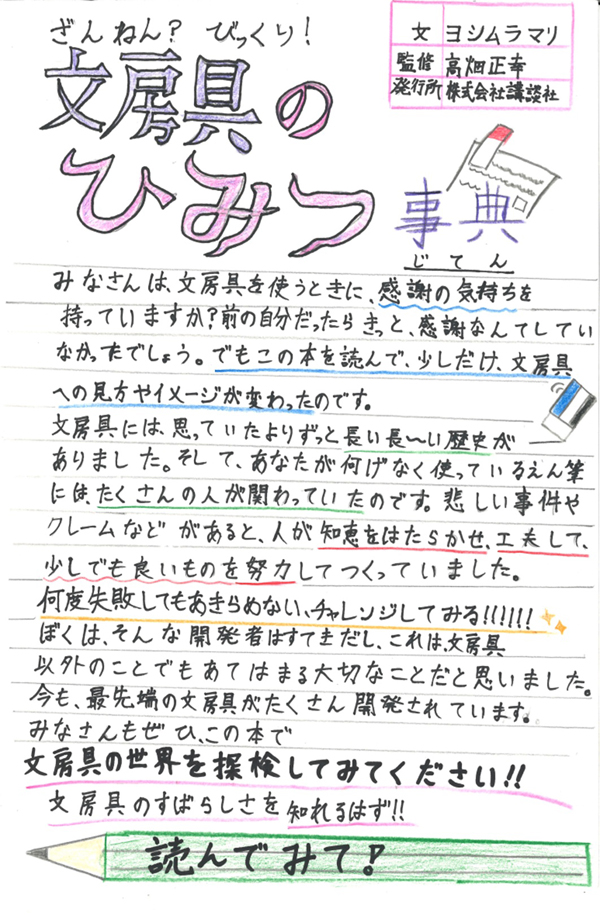 ざんねん？ びっくり！
文房具の
ひみつ
事典
じてん
文 ヨシムラマリ
監修 高畑正幸
発行所 株式会社講談社
みなさんは、文房具を使うときに、感謝の気持ちを
持っていますか？前の自分だったらきっと、感謝なんてしてい
なかったでしょう。でもこの本を読んで、少しだけ、文房具
への見方やイメージが変わったのです。
文房具には、思っていたよりずっと長い長〜い歴史が
ありました。そして、あなたが何げなく使っているえん筆
には、たくさんの人が関わっていたのです。悲しい事件や
クレームなどがあると、人が知恵をはたらかせ、工夫して、
少しでも良いものを努力してつくっていました。
何度失敗してもあきらめない、チャレンジしてみる!!!!!!
ぼくは、そんな開発者はすてきだし、これは、文房具
以外のことでもあてはまる大切なことだと思いました。
今も、最先端の文房具がたくさん開発されています。
みなさんもぜひ、この本で
文房具の世界を探検してみてください!!
文房具のすばらしさを知れるはず!!
読んでみて！